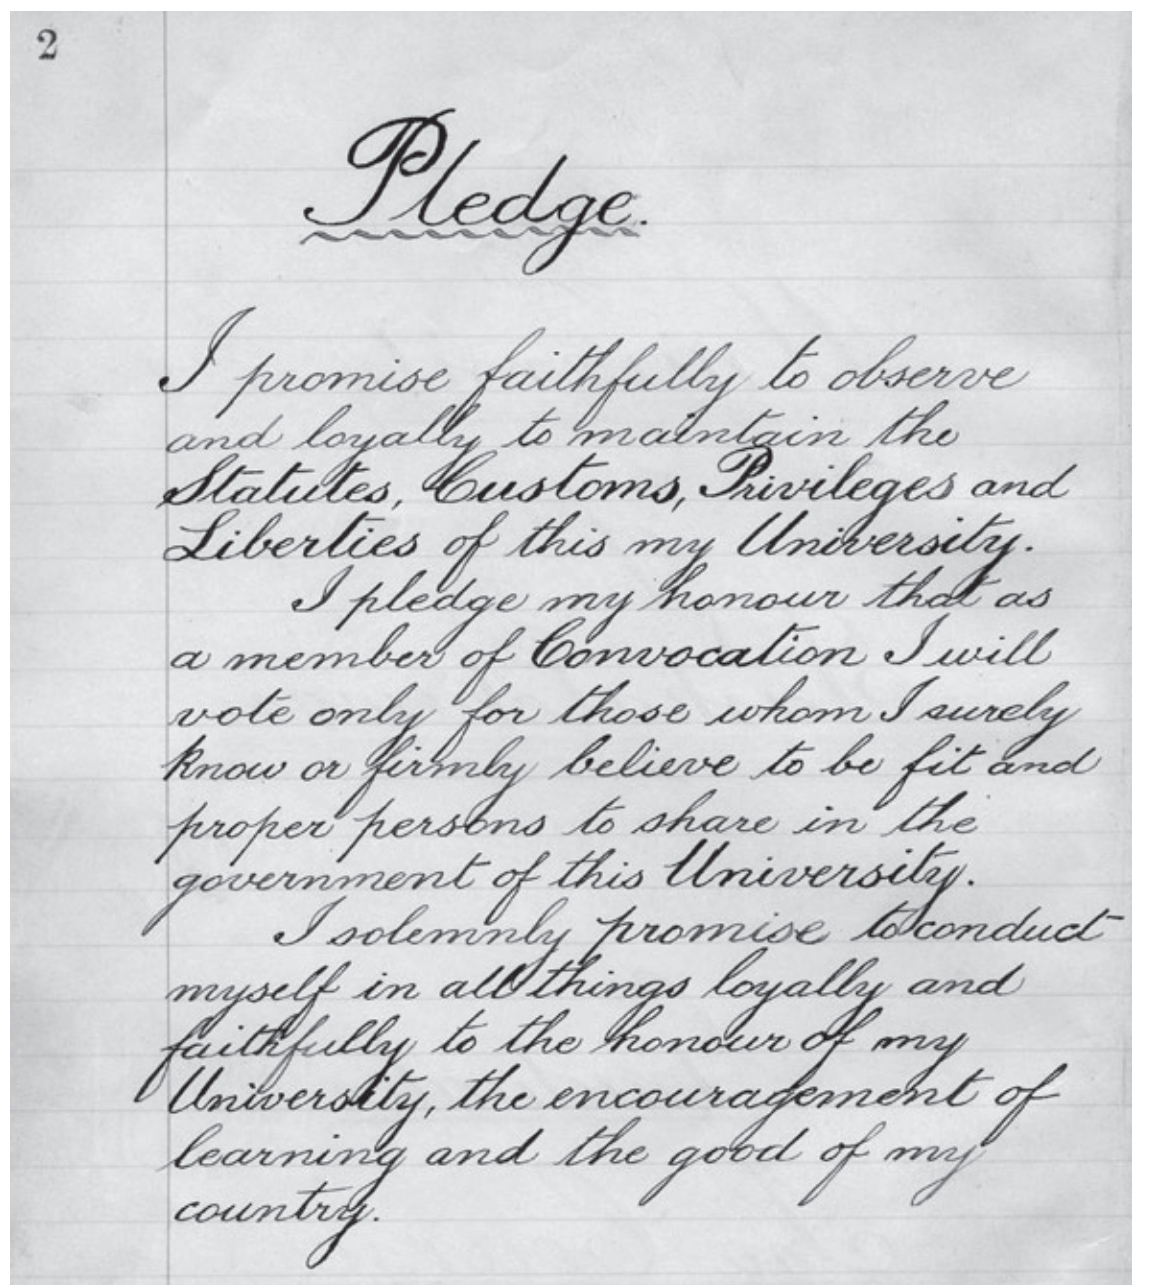 2
Pledge.
I promise faithfully to observe
and loyally to maintain the
Statutes, Customs, Privileges and
Liberties of this my University.
I pledge my honour that as
a member of Convocation I will
vote only for those whom I surely
know or firmly believe to be fit and
proper persons to share in the
government of this University.
I solemnly promise to conduct
myself in all things loyally and
faithfully to the honour of my
University, the encouragement of
learning and the good of my
country.